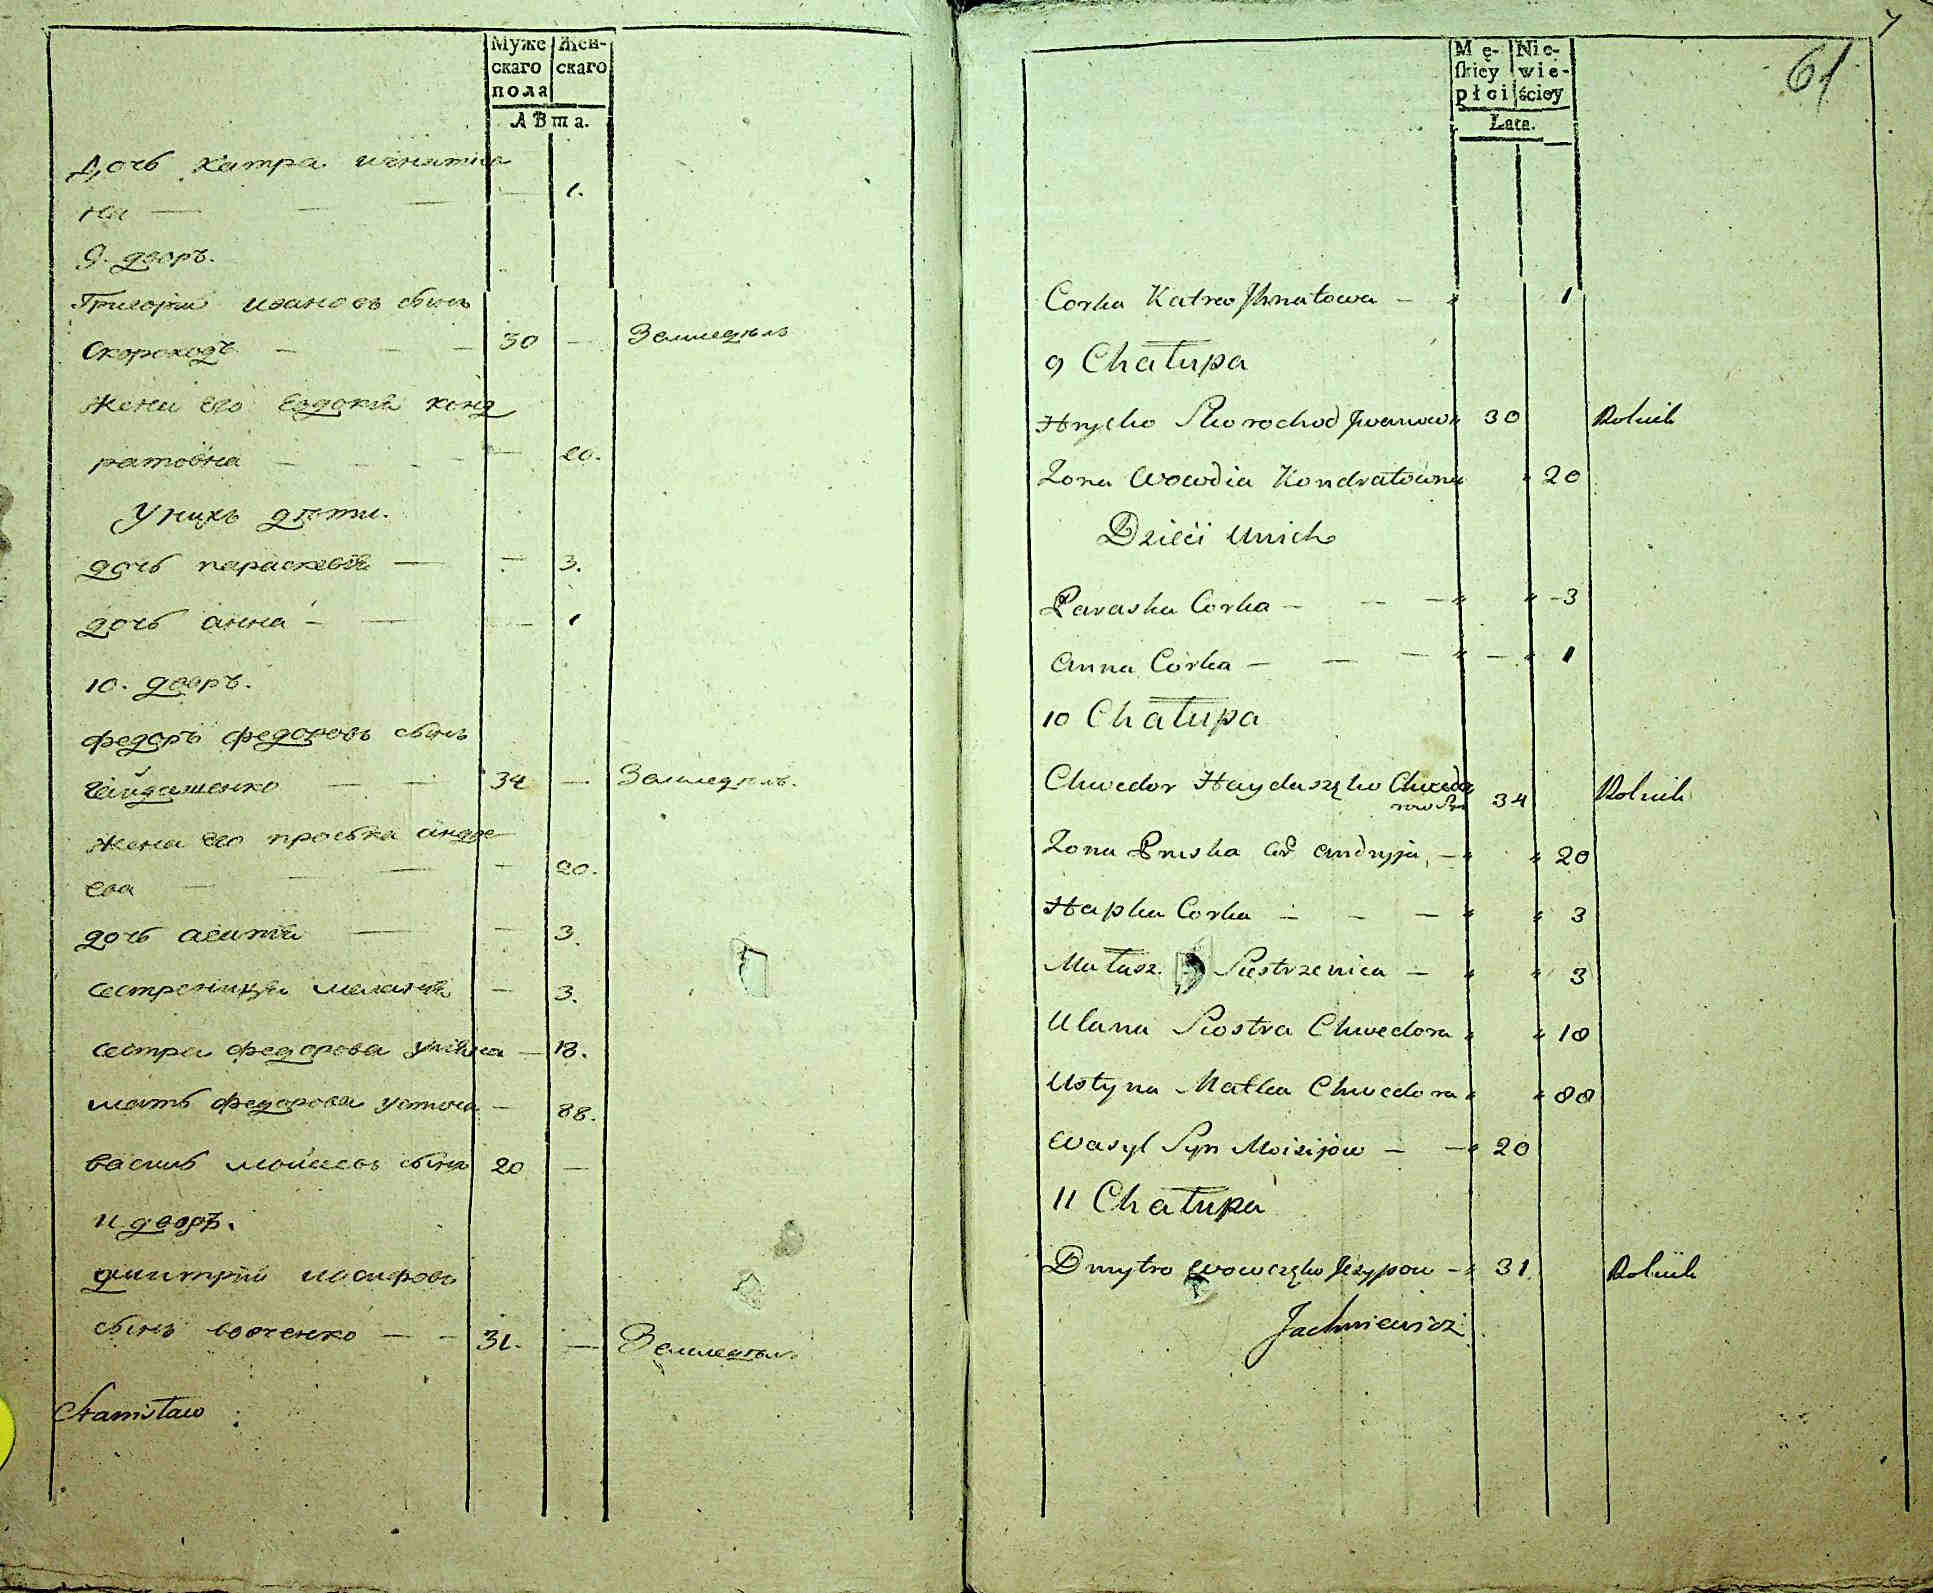 Муже Жен-
скаго скаго
пола
лѣта.
Дочь Катра игнатие
на — — — — 1.
9. дворъ.
Григорій Ивановъ сынъ
Скороходъ — — — 30 — Земледѣль
жена его Евдокія конд
ратовна — — — — 20.
У нихъ дѣти.
дочь параскевія — — 3.
дочь анна — — — 1
10. дворъ.
федоръ федоровъ сынъ
Гайдашенко — — 34 — Земледѣль.
жена его проська андре
ева — — — — 20.
дочь агапія — — 3.
сестреница меланія — 3.
сестра федорова уляна — 18.
мать федорова устина — 88.
василь мойсеевъ сынъ 20 —
11 дворъ.
дмитрій иосифовъ
сынъ вовченко — — 31. — Земледѣль.
Stanisław
7
61
Mę- Nie-
skiey wie-
płci ściey
Lata.
Corka Katra Ihnatowa — " 1
9 Chałupa
Hryćko Skorochod Iwanow " 30 Rolnik
Zona Wowdia Kondratowna " 20
Dzieći Unich
Paraska Corka — — — " " — 3
Anna Corka — — — " — " 1
10 Chałupa
Chwedor Haydaszęko Chwedo
row Syn 34 Rolnik
Zona Pruska Andryja, — " " 20
Hapka Corka — — — " " 3
Małasz. Siestrzenica — " " 3
Ulana Siostra Chwedora " " 18
Ustyna Matka Chwedora " " 88
Wasyl Syn Moisijow — — " 20
11 Chałupa
Dmytro Wowczęko Jezypow — " 31. Rolnik
Jachniewicz